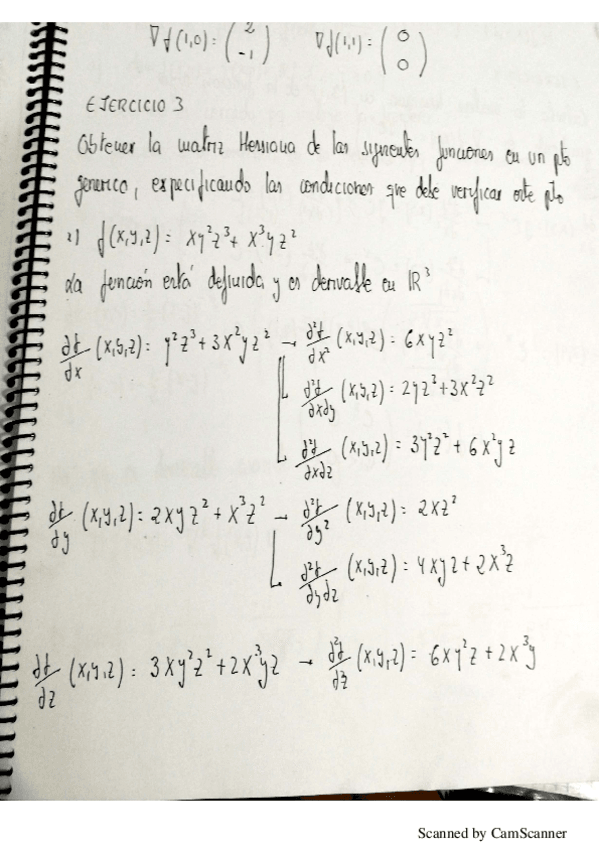 ∇f(1,0) = (2 -1) ∇f(1,1) = (0 0)
EJERCICIO 3
Obtener la matriz Hessiana de las siguientes funciones en un pto
generico, especificando las condiciones que debe verificar este pto
1) f(x,y,z) = xy²z³ + x³yz²
La función está definida y es derivable en ℝ³
∂f/∂x (x,y,z) = y²z³ + 3x²yz² → ∂²f/∂x² (x,y,z) = 6xyz²
∂²f/∂x∂y (x,y,z) = 2yz³ + 3x²z²
∂²f/∂x∂z (x,y,z) = 3y²z² + 6x²yz
∂f/∂y (x,y,z) = 2xyz² + x³z² → ∂²f/∂y² (x,y,z) = 2xz²
∂²f/∂y∂z (x,y,z) = 4xyz + 2x³z
∂f/∂z (x,y,z) = 3xy²z² + 2x³yz → ∂²f/∂z (x,y,z) = 6xy²z + 2x³y
Scanned by CamScanner